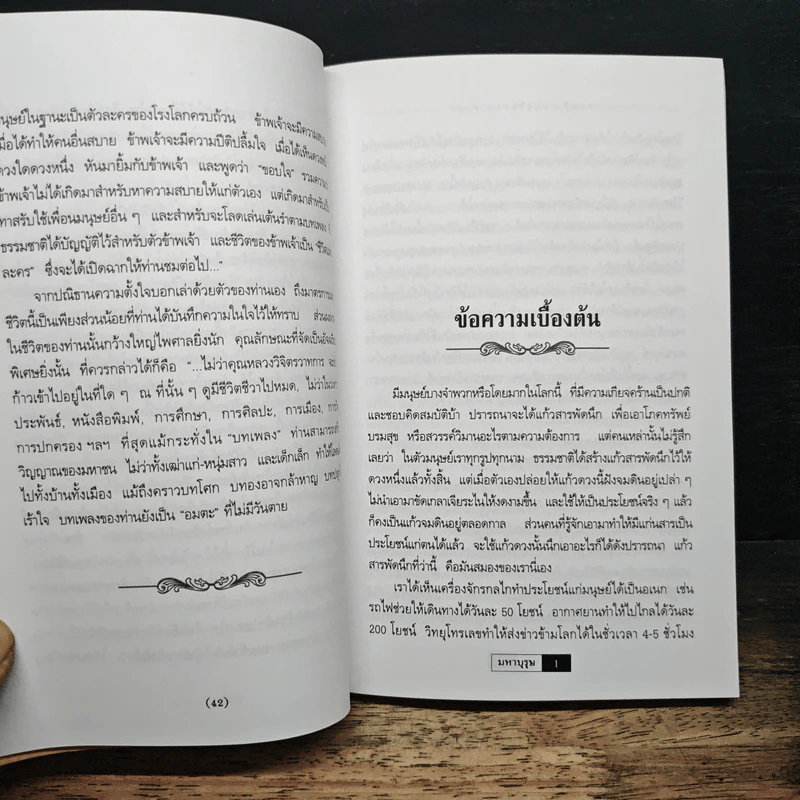 นุษย์ในฐานะเป็นตัวละครของโรงโลกครบถ้วน ข้าพเจ้าจะมีความสบาย
มื่อได้ทำให้คนอื่นสบาย ข้าพเจ้าจะมีความปีติปลื้มใจ เมื่อได้เห็นดวงหน้า
ดวงใดดวงหนึ่ง หันมายิ้มกับข้าพเจ้า และพูดว่า “ขอบใจ” รวมความว่า
ข้าพเจ้าไม่ได้เกิดมาสำหรับหาความสบายให้แก่ตัวเอง แต่เกิดมาสำหรับ
หาสรับใช้เพื่อนมนุษย์อื่น ๆ และสำหรับจะโลดเล่นเต้นรำตามบทเพลง
ธรรมชาติได้บัญญัติไว้สำหรับตัวข้าพเจ้า และชีวิตของข้าพเจ้าเป็น “ชีวิต
ละคร” ซึ่งจะได้เปิดฉากให้ท่านชมต่อไป...”
จากปณิธานความตั้งใจบอกเล่าด้วยตัวของท่านเอง ถึงมาตรการ
ชีวิตนี้เป็นเพียงส่วนน้อยที่ท่านได้บันทึกความในใจไว้ให้ทราบ
ในชีวิตของท่านนั้นกว้างใหญ่ไพศาลยิ่งนัก คุณลักษณะที่จัดเป็น
พิเศษยิ่งนั้น ที่ควรกล่าวได้ก็คือ “...ไม่ว่าคุณหลวงวิจิตรวาทการ จะ
ก้าวเข้าไปอยู่ในที่ใด ๆ ณ ที่นั้น ๆ ดูมีชีวิตชีวาไปหมด, ไม่ว่าใน
ประพันธ์, หนังสือพิมพ์, การศึกษา, การศิลปะ, การเมือง, การ
การปกครอง ฯลฯ ที่สุดแม้กระทั่งใน “บทเพลง” ท่านสามารถ
วิญญาณของมหาชน ไม่ว่าทั้งเฒ่าแก่-หนุ่มสาว และเด็กเล็ก ทำให้
ไปทั้งบ้านทั้งเมือง แม้ถึงคราวบทโศก บทองอาจกล้าหาญ บท
เร้าใจ บทเพลงของท่านยังเป็น “อมตะ” ที่ไม่มีวันตาย
(42)
ข้อความเบื้องต้น
มีมนุษย์บางจำพวกหรือโดยมากในโลกนี้ ที่มีความเกียจคร้านเป็นปกติ
และชอบคิดสมบัติบ้า ปรารถนาจะได้แก้วสารพัดนึก เพื่อเอาโภคทรัพย์
บรมสุข หรือสวรรค์วิมานอะไรตามความต้องการ แต่คนเหล่านั้นไม่รู้สึก
เลยว่า ในตัวมนุษย์เราทุกรูปทุกนาม ธรรมชาติได้สร้างแก้วสารพัดนึกไว้ให้
ดวงหนึ่งแล้วทั้งสิ้น แต่เมื่อตัวเองปล่อยให้แก้วดวงนี้ฝังจมดินอยู่เปล่า ๆ
ไม่นำเอามาขัดเกลาเจียระไนให้งดงามขึ้น และใช้ให้เป็นประโยชน์จริง ๆ แล้ว
ก็คงเป็นแก้วจมดินอยู่ตลอดกาล ส่วนคนที่รู้จักเอามาทำให้มีแก่นสารเป็น
ประโยชน์แก่ตนได้แล้ว จะใช้แก้วดวงนั้นนึกเอาอะไรก็ได้ดังปรารถนา แก้ว
สารพัดนึกที่ว่านี้ คือมันสมองของเรานี่เอง
เราได้เห็นเครื่องจักรกลไกทำประโยชน์แก่มนุษย์ได้เป็นอเนก เช่น
รถไฟช่วยให้เดินทางได้วันละ 50 โยชน์ อากาศยานทำให้ไปไกลได้วันละ
200 โยชน์ วิทยุโทรเลขทำให้ส่งข่าวข้ามโลกได้ในชั่วเวลา 4-5 ชั่วโมง
มหาบุรุษ 1